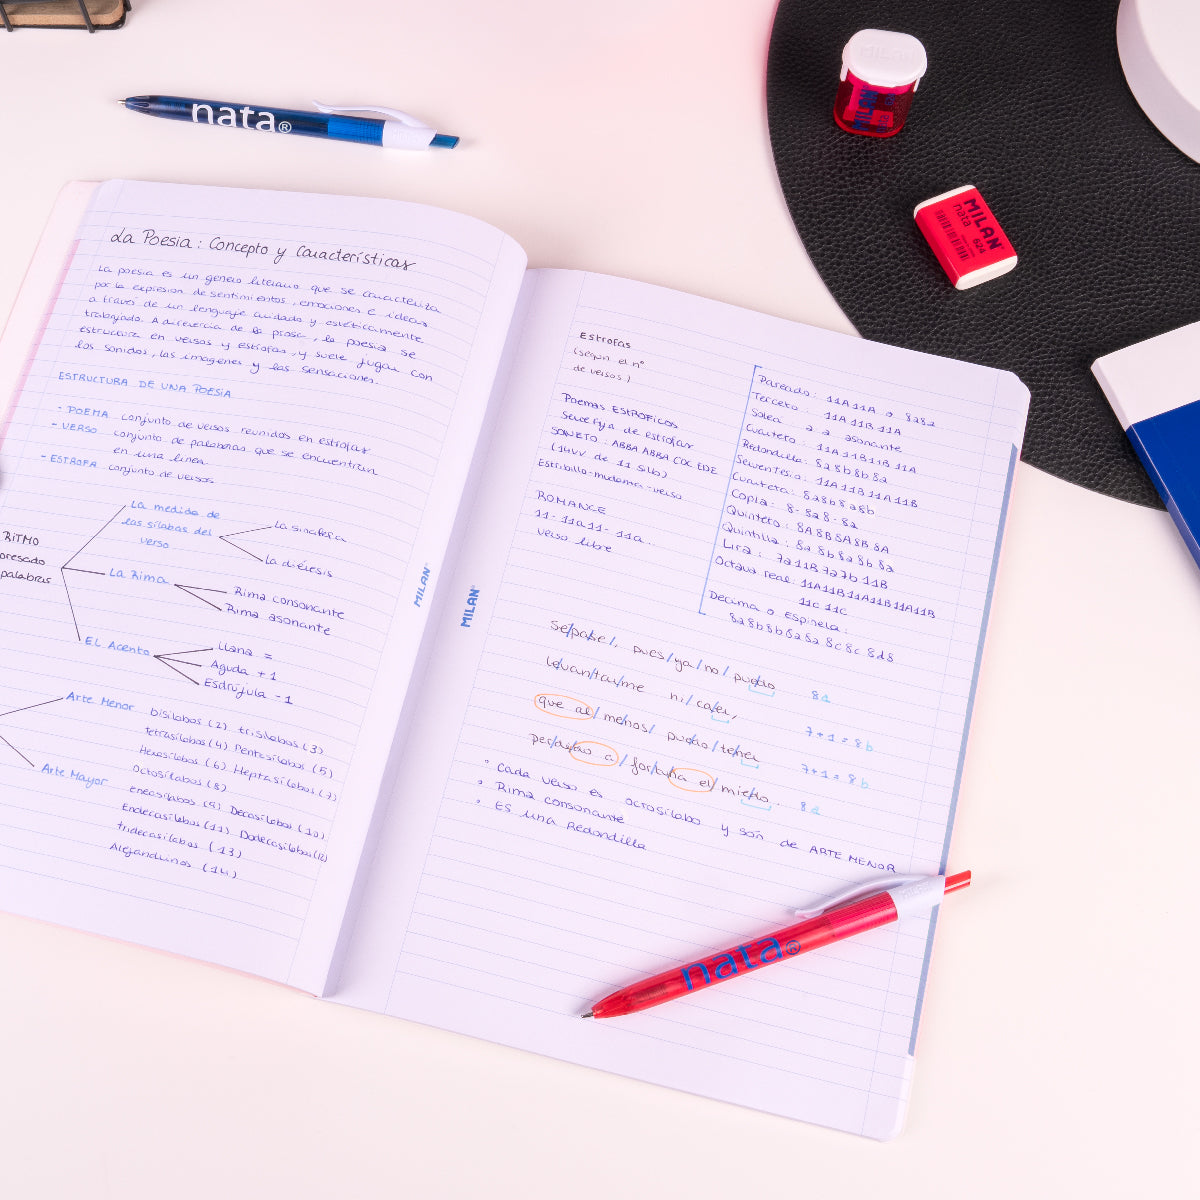 nata®
MILAN
MILAN
nata
MILAN
nata
624
La Poesía: Concepto y Características
La poesía es un género literario que se caracteriza
por la expresión de sentimientos, emociones e ideas
a través de un lenguaje cuidado y estéticamente
trabajado. A diferencia de la prosa, la poesía se
estructura en versos y estrofas, y suele jugar con
los sonidos, las imágenes y las sensaciones.
ESTRUCTURA DE UNA POESÍA
- POEMA conjunto de versos reunidos en estrofas
- VERSO conjunto de palabras que se encuentran
en una línea
- ESTROFA conjunto de versos
RITMO
palabras
La medida de
las sílabas del
verso
La sinalefa
La diéresis
La Rima
Rima consonante
Rima asonante
EL Acento
Llana =
Aguda + 1
Esdrújula - 1
Arte Menor
bisílabos (2) trisílabos (3)
tetrasílabos (4) Pentasílabos (5)
Hexasílabos (6) Heptasílabos (7)
octosílabos (8)
Arte Mayor
eneasílabos (9) Decasílabos (10)
Endecasílabos (11) Dodecasílabos (12)
tridecasílabos (13)
Alejandrinos (14)
MILAN
MILAN
Estrofas
(según el nº
de versos)
Poemas ESTRÓFICOS
de estrofas
SONETO: ABBA ABBA CDC EDE
(14vv de 11 sílb)
Estribillo-mudanza-verso
ROMANCE
11- 11a 11- 11a..
verso libre
Pareado: 11A 11A o 8a8a
Terceto: 11A 11B 11A
Solea a a asonante
Cuarteto: 11A 11B 11B 11A
Redondilla: 8a 8b 8b 8a
Serventesio: 11A 11B 11A 11B
Cuarteta: 8a8b8a8b
Copla: 8- 8a 8- 8a
Quinteto: 8A 8B 5A 8B 8A
Quintilla: 8a 8b 8a 8b 8a
Lira: 7a 11B 7a 7b 11B
Octava real: 11A11B11A11B11A11B
11C 11C
Décima o Espinela:
8a 8b 8b 8a 8a 8c 8c 8d8
Se/pa/se/, pues/ya/no/ puedo 8a
levan/tar/me ni/caer, 7+1=8b
que al/ menos/ puedo/tener 7+1=8b
a/ for/tuna el/ miedo 8a
° Cada verso es octosílabo y son de ARTE MENOR
° Rima consonante
° ES una Redondilla
nata®